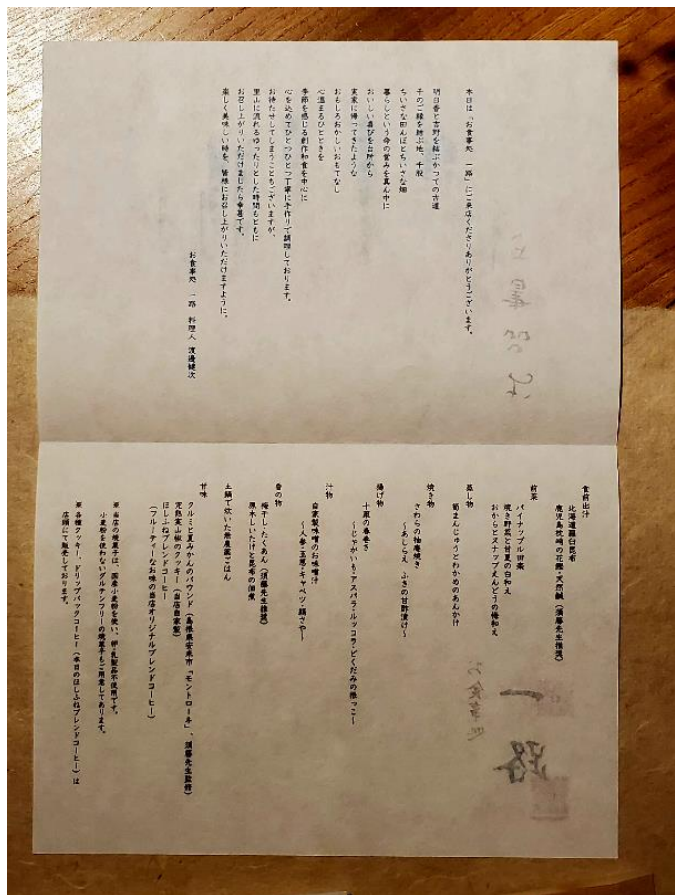 本日は「お食事処　一路」にご来店くださりありがとうございます。
明日香と吉野を結ぶかつての古道
千のご縁を結ぶ地、千股
ちいさな田んぼとちいさな畑
暮らしという命の営みを真ん中に
おいしい喜びを台所から
実家に帰ってきたような
おもしろおかしいおもてなし
心温まるひとときを
季節を感じる創作和食を中心に
心を込めてひとつひとつ丁寧に手作りで調理しております。
お待たせしてしまうこともございますが、
里山に流れるゆったりとした時間もともに
お召し上がりいただけましたら幸甚です。
楽しく美味しい時を、皆様にお召し上がりいただけますように。
お食事処　一路　料理人　渡邊健次
食前出汁
北海道羅臼昆布
鹿児島枕崎の花鰹・天然鹹（須藤先生推奨）
前菜
パイナップル田楽
焼き野菜と甘夏の白和え
おからとスナップえんどうの梅和え
蒸し物
筍まんじゅうとわかめのあんかけ
焼き物
さわらの柚庵焼き
～あしらえ　ふきの甘酢漬け～
揚げ物
十薬の春巻き
～じゃがいも・アスパラ・ルッコラ・どくだみの根っこ～
汁物
自家製味噌のお味噌汁
～人参・玉葱・キャベツ・絹さや～
香の物
梅干し・たくあん（須藤先生推奨）
原木しいたけと昆布の佃煮
土鍋で炊いた無農薬ごはん
甘味
クルミと夏みかんのパウンド（島根県安来市「モントローネ」、須藤先生監修）
完熟実山椒のクッキー（当店自家製）
ほしふねブレンドコーヒー
（フルーティーなお味の当店オリジナルブレンドコーヒー）
※当店の焼菓子は、国産小麦粉を使い、卵・乳製品不使用です。
小麦粉を使わないグルテンフリーの焼菓子もご用意してあります。
※各種クッキー、ドリップバックコーヒー（本日のほしふねブレンドコーヒー）は
店頭にて販売しております。
お食事処
一路